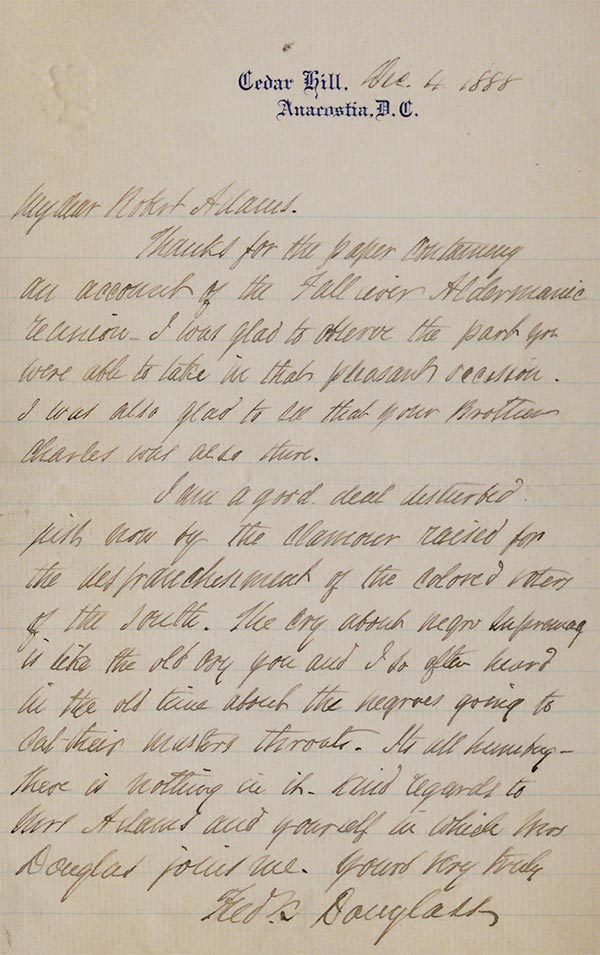 Cedar Hill. Dec. 4 1888
Anacostia, D. C.
My dear Robert Adams.
Thanks for the paper containing
an account of the Fall river Aldermanic
reunion - I was glad to observe the part you
were able to take in that pleasant occasion.
I was also glad to see that your Brother
Charles was also there.
I am a good deal disturbed
just now by the clamour raised for
the disfranchisement of the colored voters
of the South. The cry about negro supremacy
is like the old cry you and I so often heard
in the old time about the negroes going to
cut their masters throats. Its all humbug -
there is nothing in it - kind regards to
Mrs Adams and yourself in which Mrs
Douglass joins me. Yours very truly
Fredk Douglass